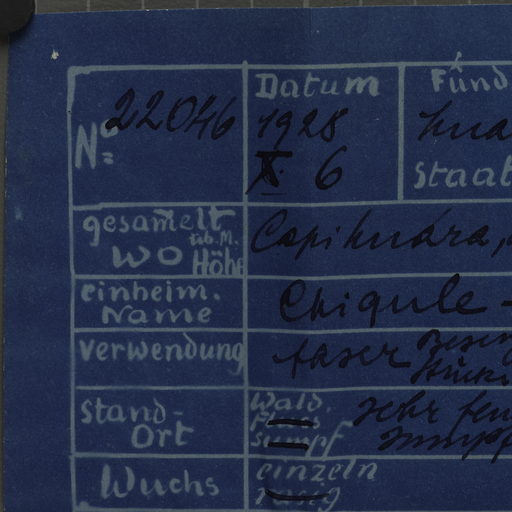 No 22046
Datum
1928
X. 6
Fund
Staat
gesam̄elt
wo üb. M. Höhe
Capihuára,
einheim. Name
Chiqule -
Verwendung
faser
Stand-Ort
Wald.
Fluss
Sumpf
sehr
Wuchs
einzeln
rasig